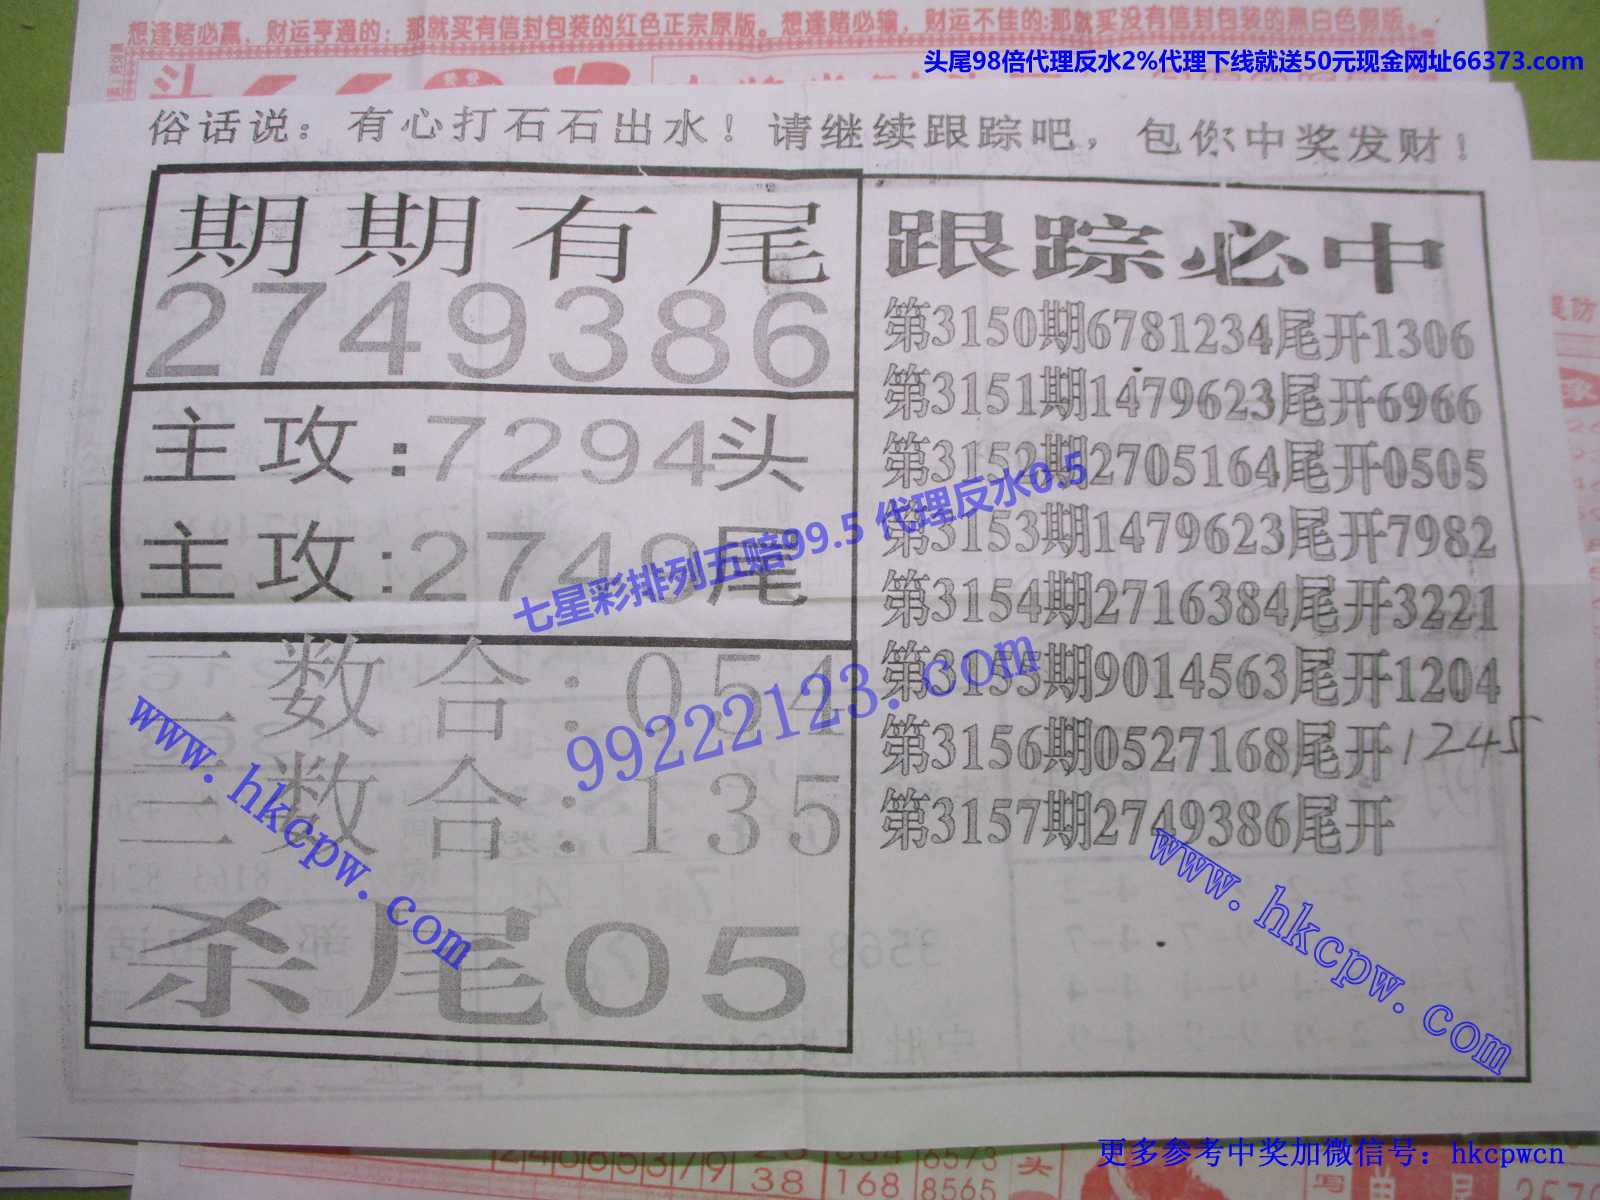 想逢赌必赢、财运亨通的：那就买有信封包装的红色正宗原版。想逢赌必输，财运不佳的：那就买没有信封包装的黑白色假版。
头尾98倍代理反水2%代理下线就送50元现金网址66373.com
头
俗话说：有心打石石出水！请继续跟踪吧，包你中奖发财！
期期有尾
2749386
主攻:7294头
主攻:2749尾
二数合:054
三数合:135
杀尾05
跟踪必中
第3150期6781234尾开1306
第3151期1479623尾开6966
第3152期2705164尾开0505
第3153期1479623尾开7982
第3154期2716384尾开3221
第3155期9014563尾开1204
第3156期0527168尾开1245
第3157期2749386尾开
七星彩排列五赔99.5 代理反水0.5
99222123.com
www.hkcpw.com
www.hkcpw.com
更多参考中奖加微信号：hkcpwcn
38 168 8565
6573
头